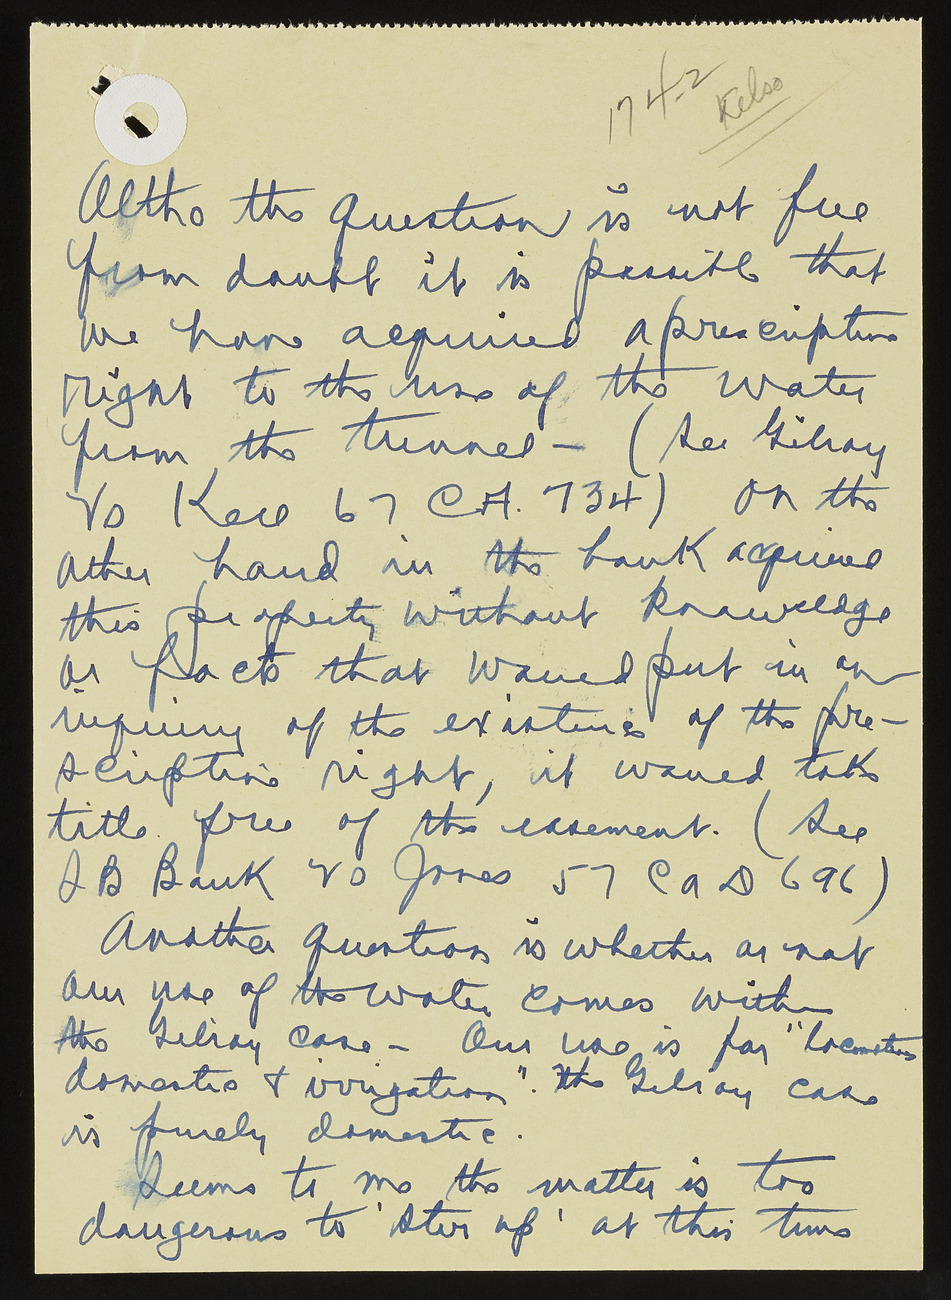 174-2 Kelso
Altho the question is not free
from doubt it is possible that
we have acquired a prescriptive
right to the use of the water
from the tunnel — (See Gilroy
vs Kell 67 C.A. 734) On the
other hand in the bank acquired
this property without knowledge
or facts that would put in on
inquiry of the existence of the pre-
scriptive right, it would take
title free of the easement. (See
S B Bank vs Jones 57 Ca D 696)
Another question is whether or not
our use of the water comes within
the Gilroy case — Our use is for "locomotive
domestic & irrigation". The Gilroy case
is purely domestic.
Seems to me the matter is too
dangerous to 'stir up' at this time